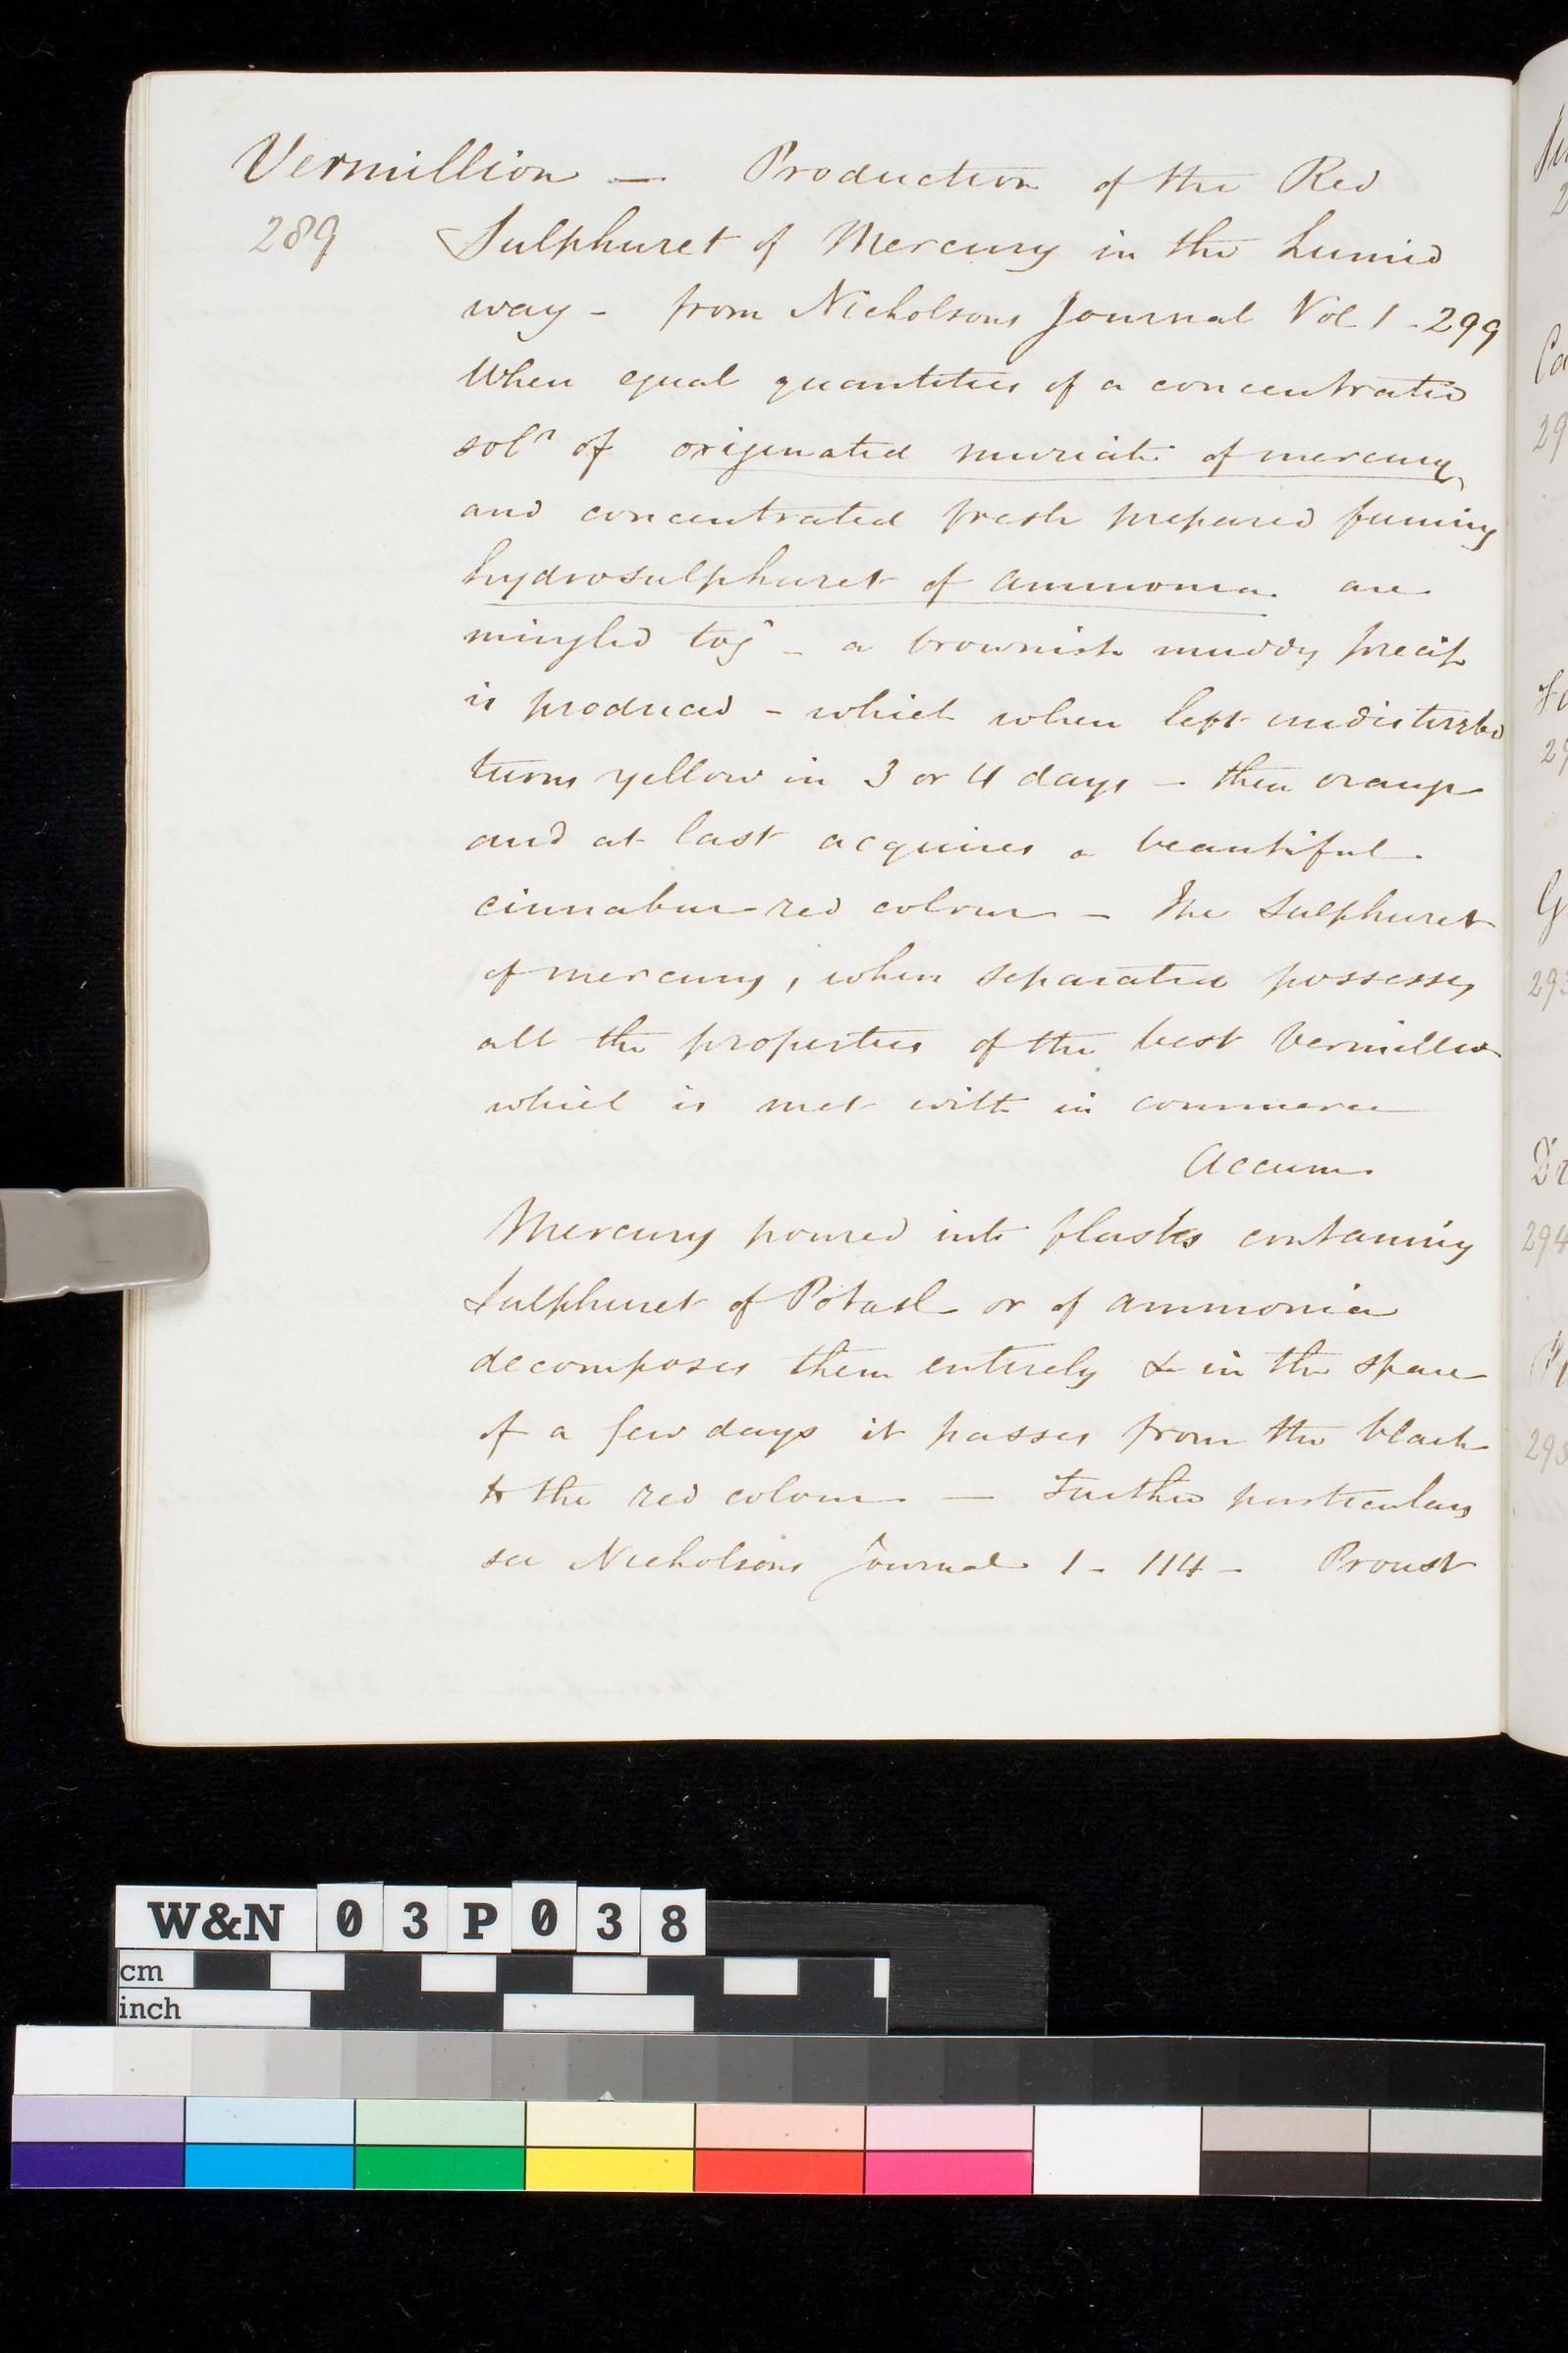 Vermillion — Production of the Red
289 Sulphuret of Mercury in the humid
way - from Nicholsons Journal Vol 1 - 299
When equal quantities of a concentrated
solⁿ of origenated muriate of mercury
and concentrated fresh prepared fuming
hydrosulphuret of ammonia are
mingled togʳ - a brownish muddy precip
is produced - which when left undisturbed
turns yellow in 3 or 4 days - then orange
and at last acquires a beautiful
cinnabar red colour - The Sulphuret
of mercury, when separated possesses
all the properties of the best Vermillion
which is met with in commerce
Accum
Mercury poured into flasks containing
Sulphuret of Potash or of ammonia
decomposes them entirely & in the space
of a few days it passes from the black
to the red colour — Further particulars
see Nicholsons Journal 1 - 114 - Proust
W&N 03P038
cm
inch